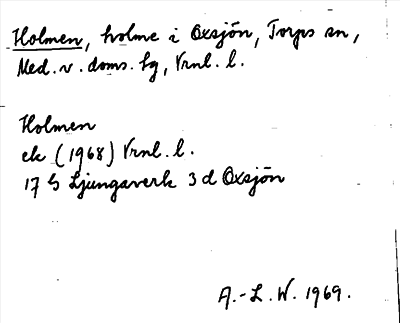 Holmen, holme i Oxsjön, Torps sn,
Med. v. doms. hg, Vrnl. l.
Holmen
ek (1968) Vrnl. l.
17 G Ljungaverk 3 d Oxsjön
A.-L. W. 1969.